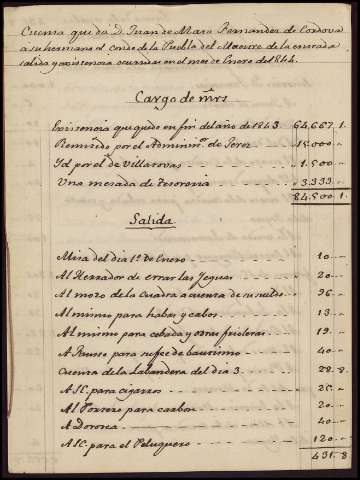 Cuenta que da D. Juan de Mata Fernandez de Cordova
a su hermano el Conde de la Puebla del Maestre de la entrada
salida y existencia ocurridas en el mes de Enero de 1844.
Cargo de mrs
Existencia que quedo en fin del año de 1843 64,667 1.
Remitido por el Administr. de Jerez 15.000
Yd por el de Villarosas 1.500
Una mesada de Tesoreria 3.333
84.500 1.
Salida
Misa del dia 1º De Enero 10
Al Herrador de errar las Yeguas 20
Al mozo de la Cuadra a cuenta de su sueldo 96
Al mismo para habas y cabos 13
Al mismo para cebada y otras frioleras 19
A para su fee de bautismo 40
Cuenta de la labandera del dia 3 28 8.
A SE. para cigarros 25
Al Portero para carbon 20
A Dorotea 40
A SE. para el Peluquero 120
431 8